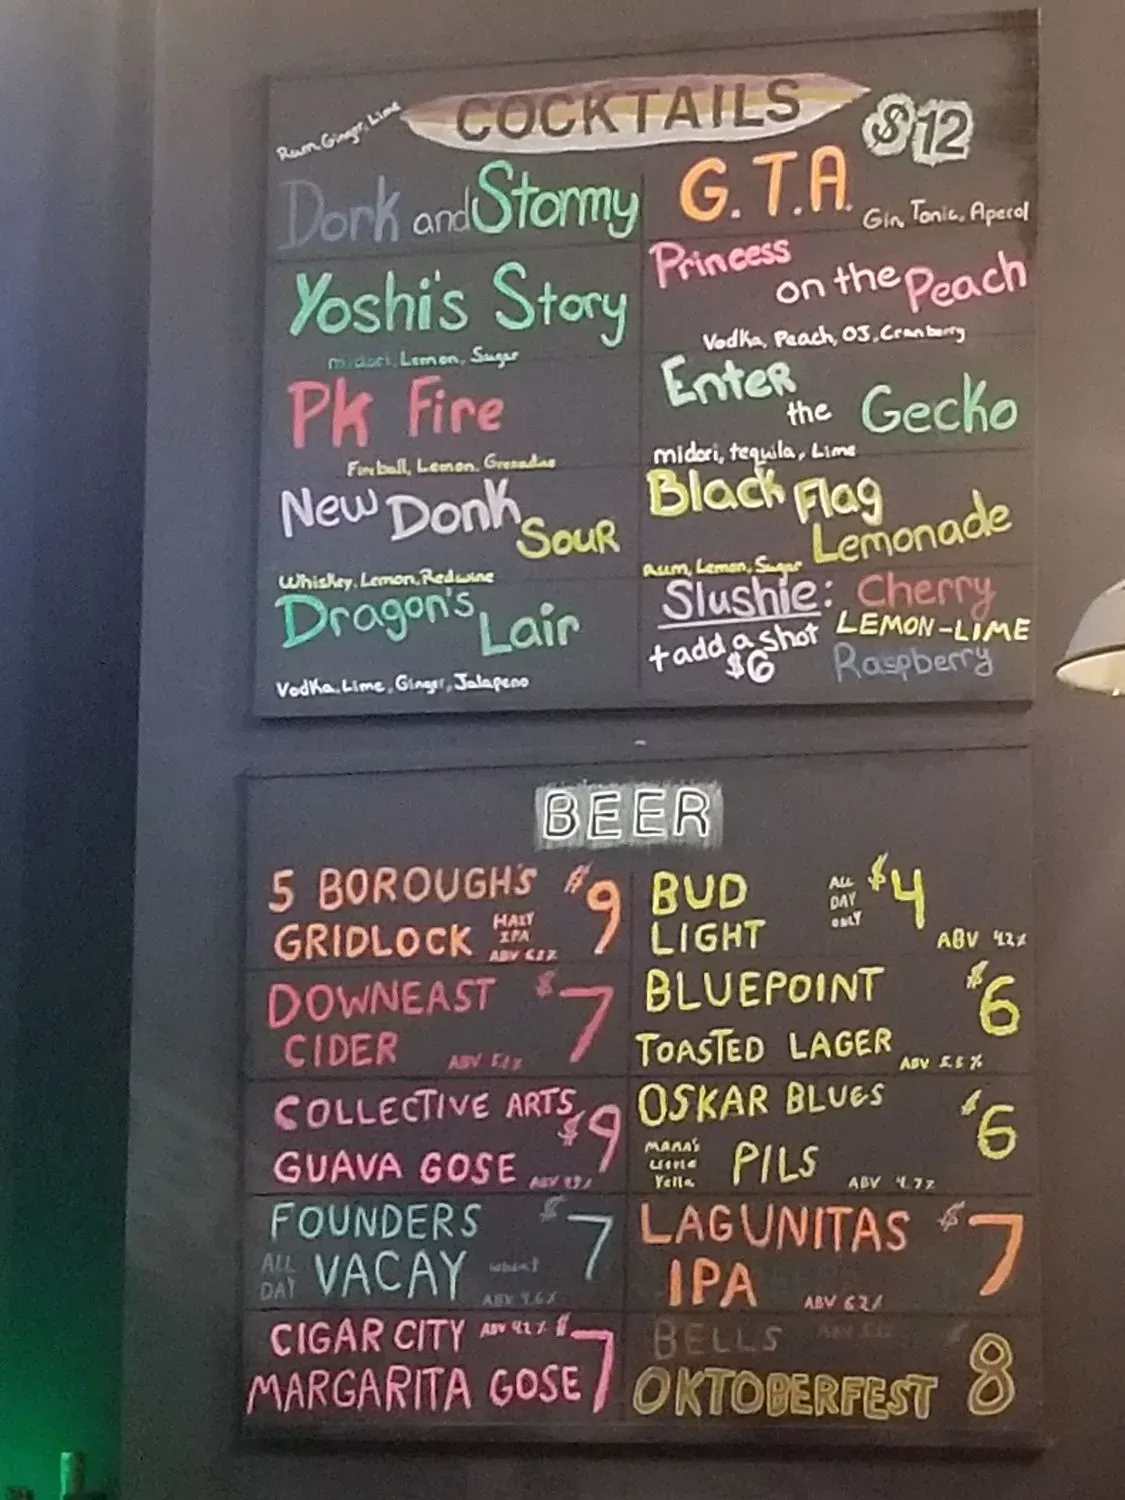 COCKTAILS
$12
Rum, Ginger, Lime
Dork and Stormy
Yoshi's Story
midori, Lemon, Sugar
PK Fire
Fireball, Lemon, Grenadine
New Donk Sour
Whiskey, Lemon, Red wine
Dragon's Lair
Vodka, Lime, Ginger, Jalapeno
G.T.A.
Gin, Tonic, Aperol
Princess on the Peach
Vodka, Peach, OJ, Cranberry
Enter the Gecko
midori, tequila, Lime
Black Flag Lemonade
Rum, Lemon, Sugar
Slushie: Cherry
LEMON-LIME
Raspberry
+ add a shot
$6
BEER
5 BOROUGH'S $9
GRIDLOCK HAZY IPA
DOWNEAST $7
CIDER ABV
COLLECTIVE ARTS $9
GUAVA GOSE ABV
FOUNDERS $7
ALL DAY VACAY wheat
ABV 4.6%
CIGAR CITY ABV 4.2% $7
MARGARITA GOSE
BUD LIGHT ALL DAY ONLY $4
ABV 4.2%
BLUEPOINT $6
TOASTED LAGER ABV 5.5%
OSKAR BLUES $6
MAMA'S Little Yella PILS ABV 4.7%
LAGUNITAS $7
IPA ABV 6.2%
BELLS ABV $8
OKTOBERFEST